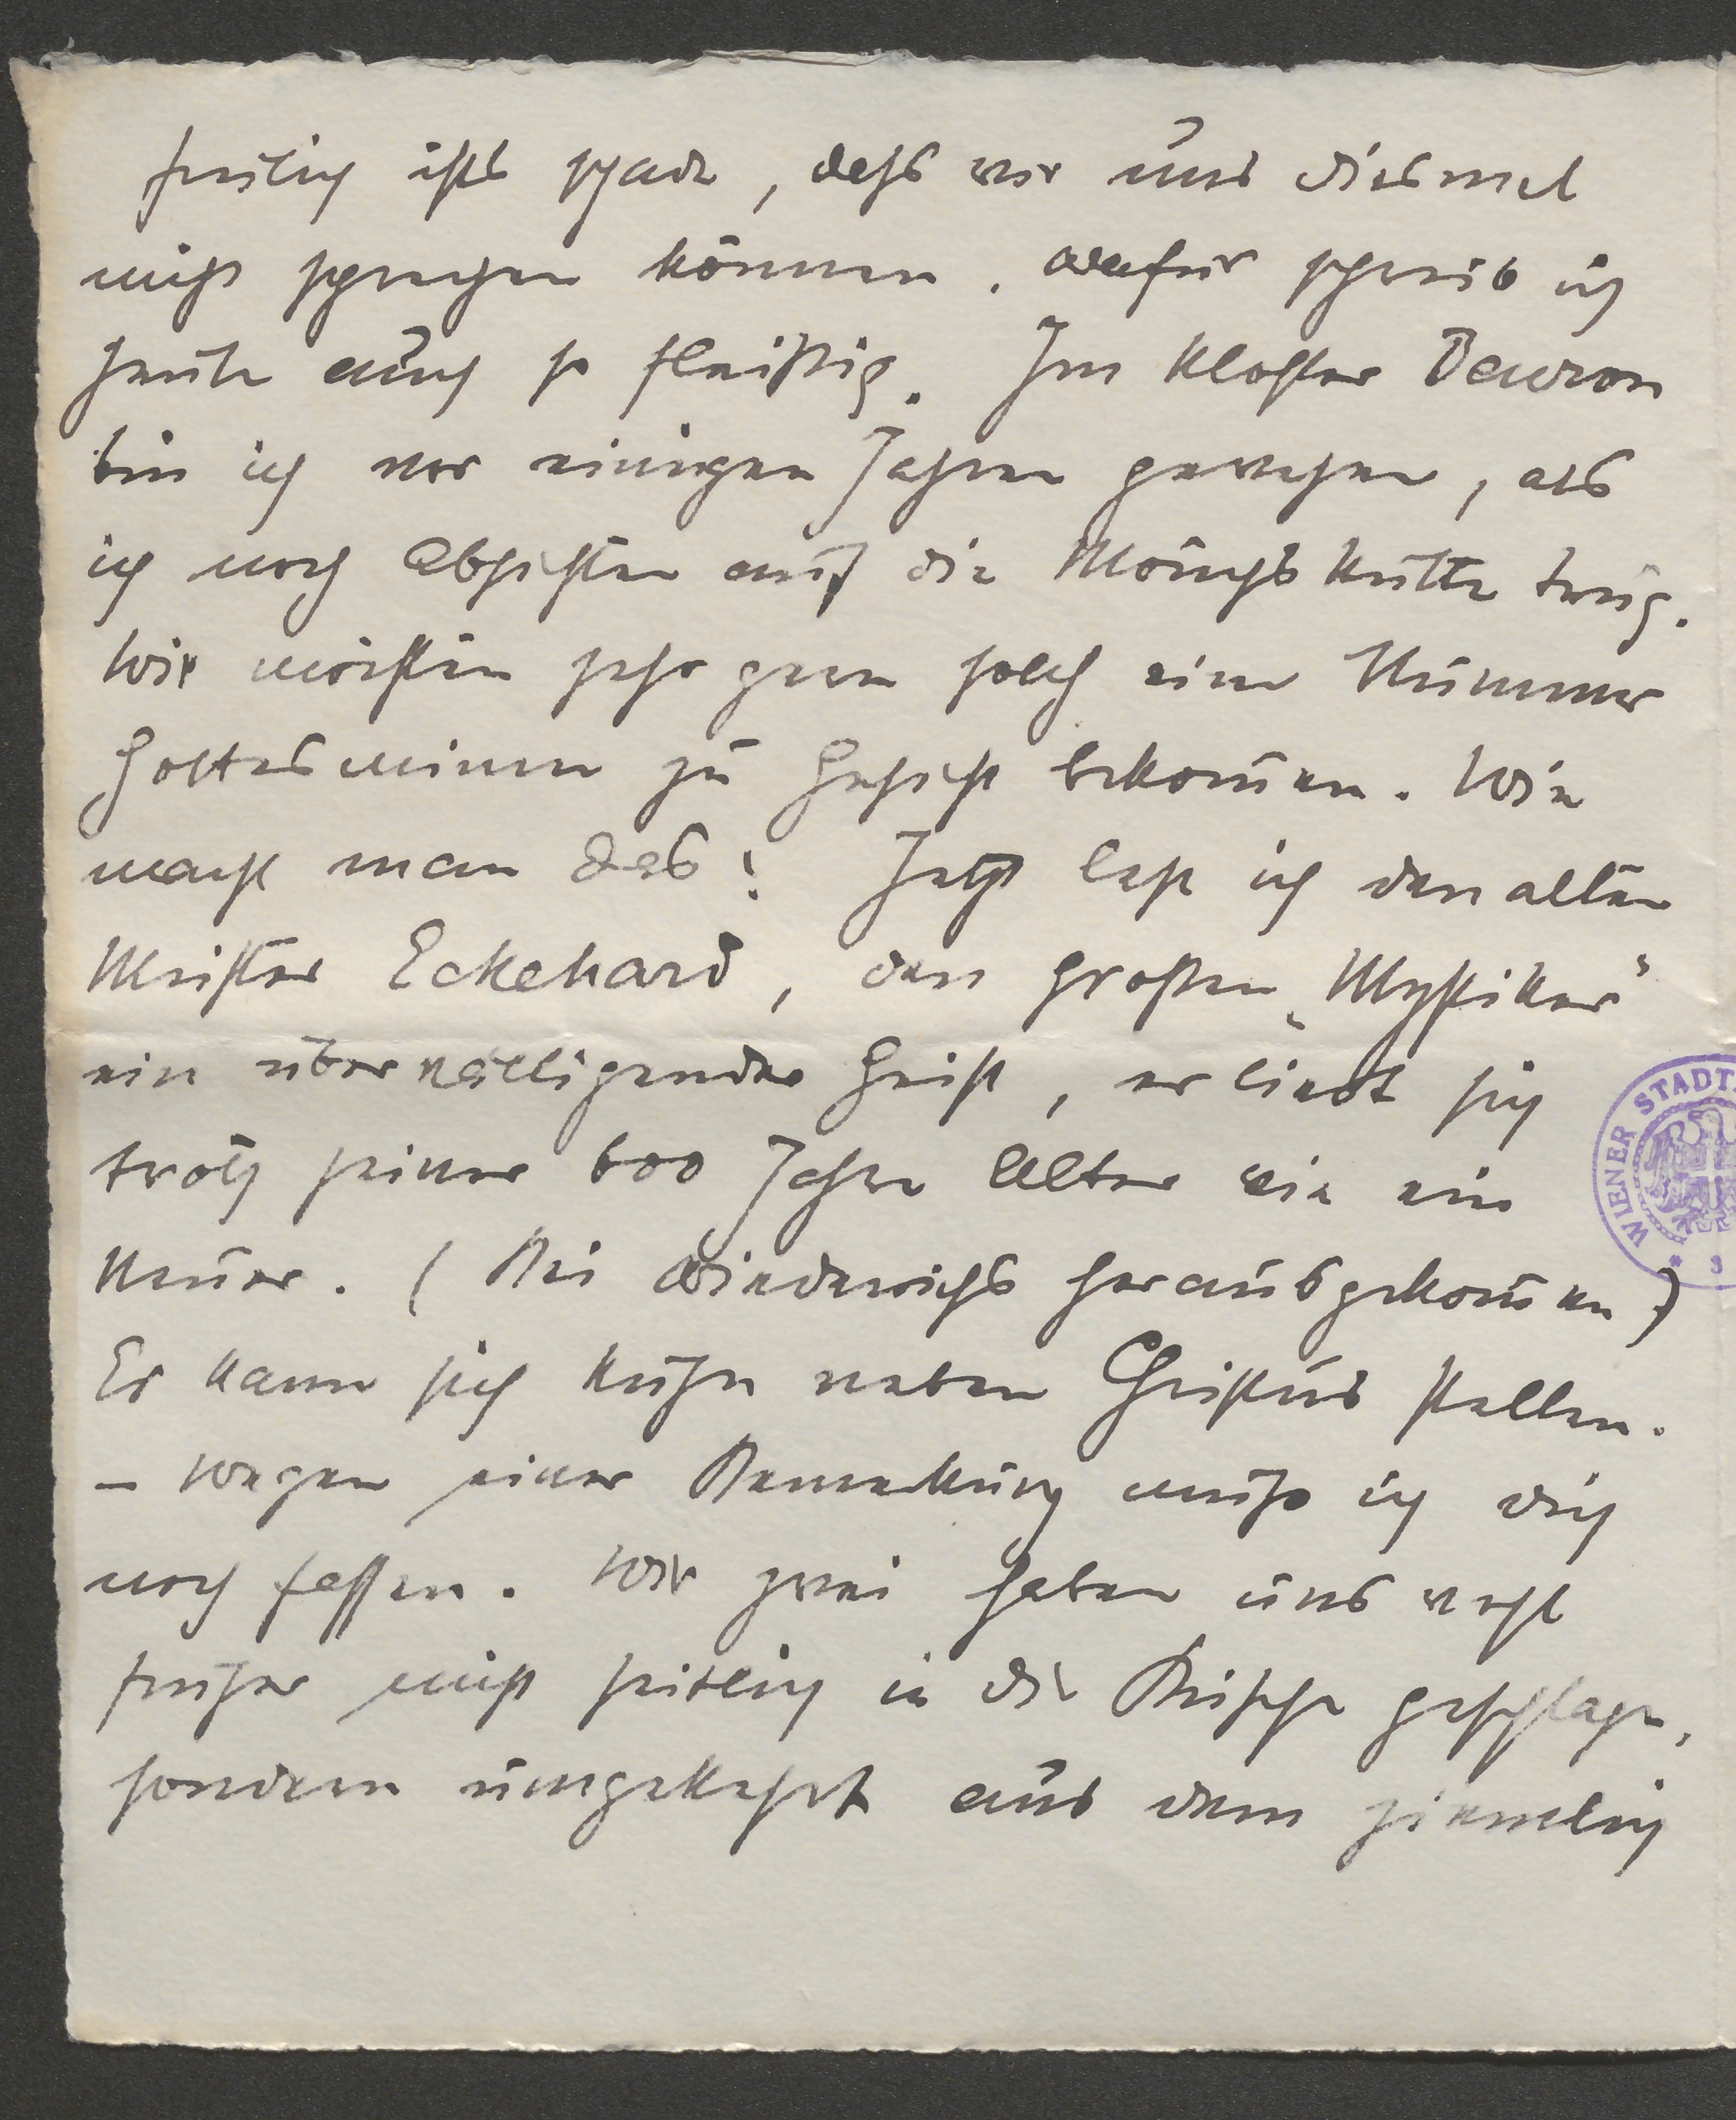 freilich ists schade, dass wir uns diesmal
nicht sprechen können. Dafür schreib ich
heute auch so fleissig. Im Kloster Beuron
bin ich vor einigen Jahren gewesen, als
ich noch Absichten auf die Mönchskutte trug.
Wir möchten sehr gern solch eine Nummer
Gottesminne zu Gesicht bekommen. Wie
macht man das? Jetzt lese ich den alten
Meister Eckehard, den grossen „Mystiker"
ein überwältigender Geist, er liest sich
trotz seiner 600 Jahre Alter wie ein
Neuer. (Bei Diederichs herausgekommen)
Er kann sich kühn neben Christus stellen.
– Wegen einer Bemerkung muss ich dich
noch fassen. Wir zwei haben uns wohl
früher nicht seitlich in die Büsche geschlagen,
sondern umgekehrt aus dem ziemlich
WIENER STADT